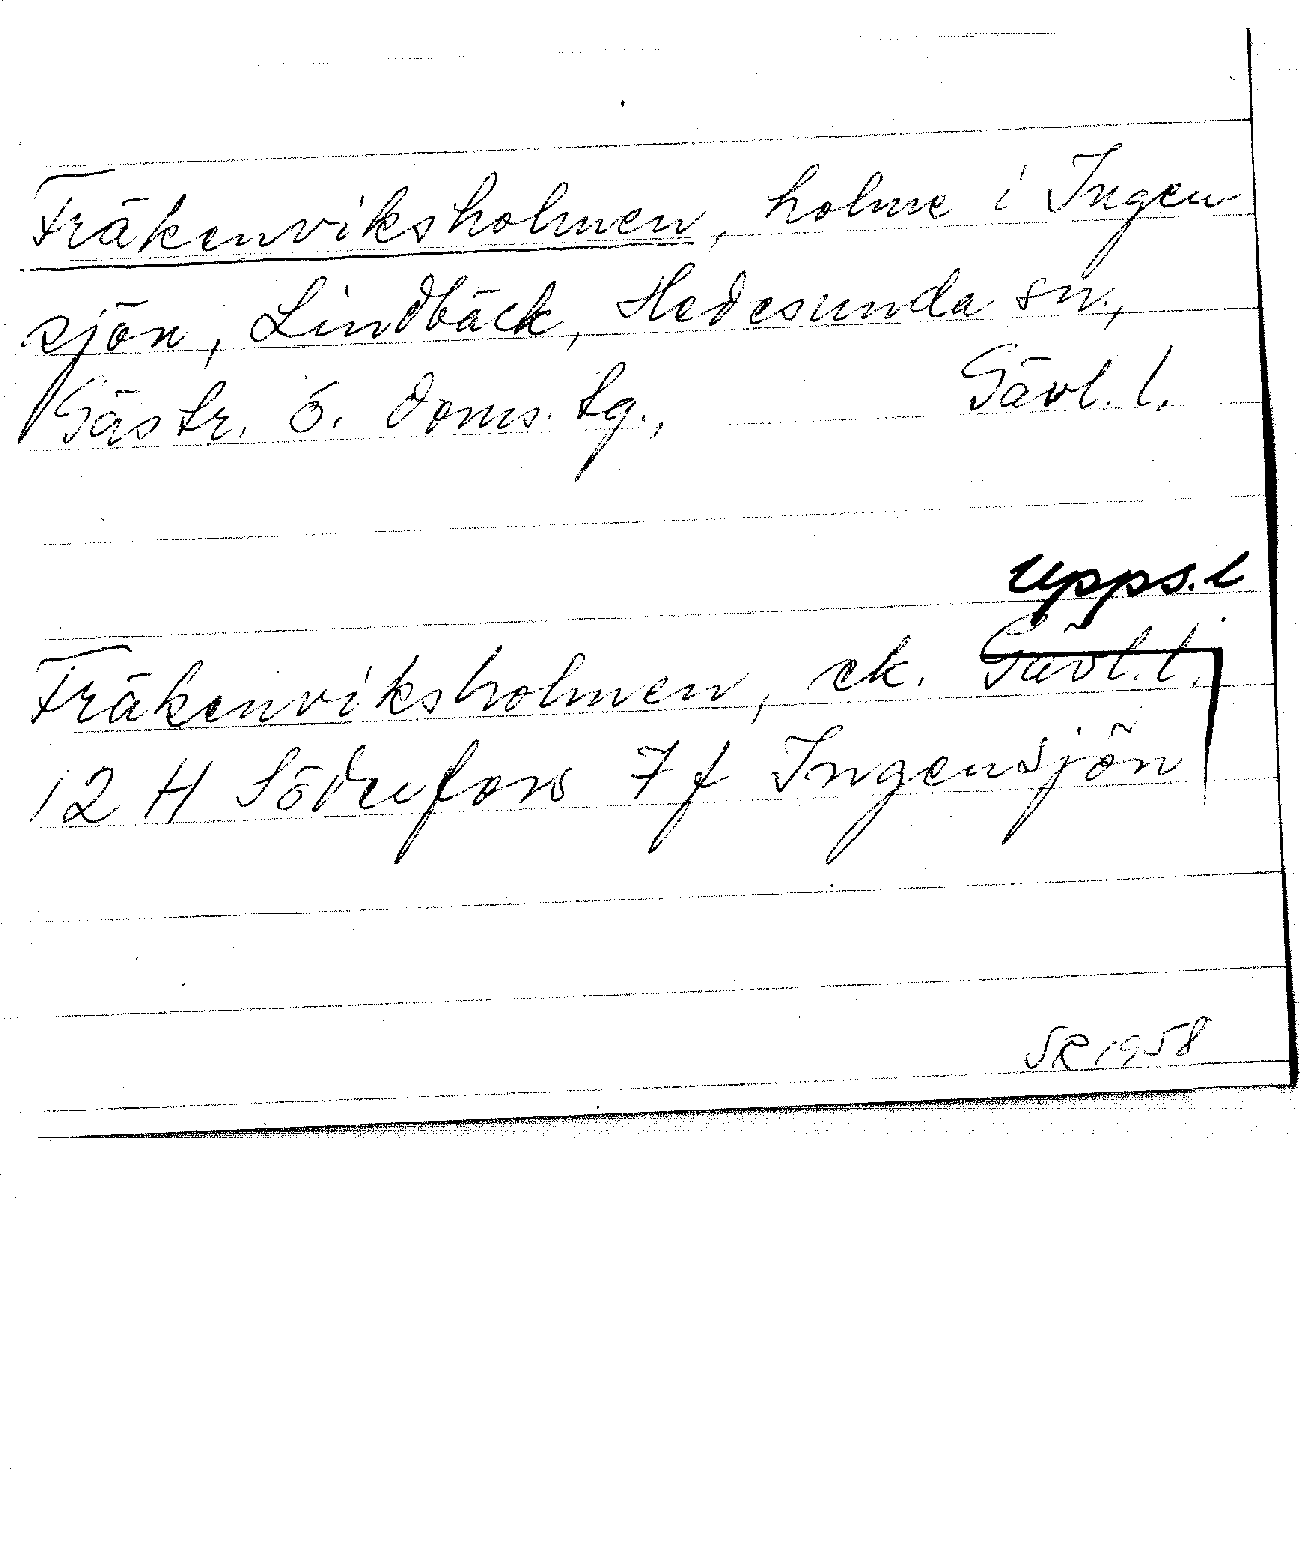 Fräkenviksholmen, holme i Ingen
sjön, Lindbäck, Hedesunda sn.,
Gästr. ö. doms. tg., Gävl. l.
Upps. l
Fräkenviksholmen, ek. Gävl. l.
12 H Söderfors 7 f Ingensjön
SR 1958